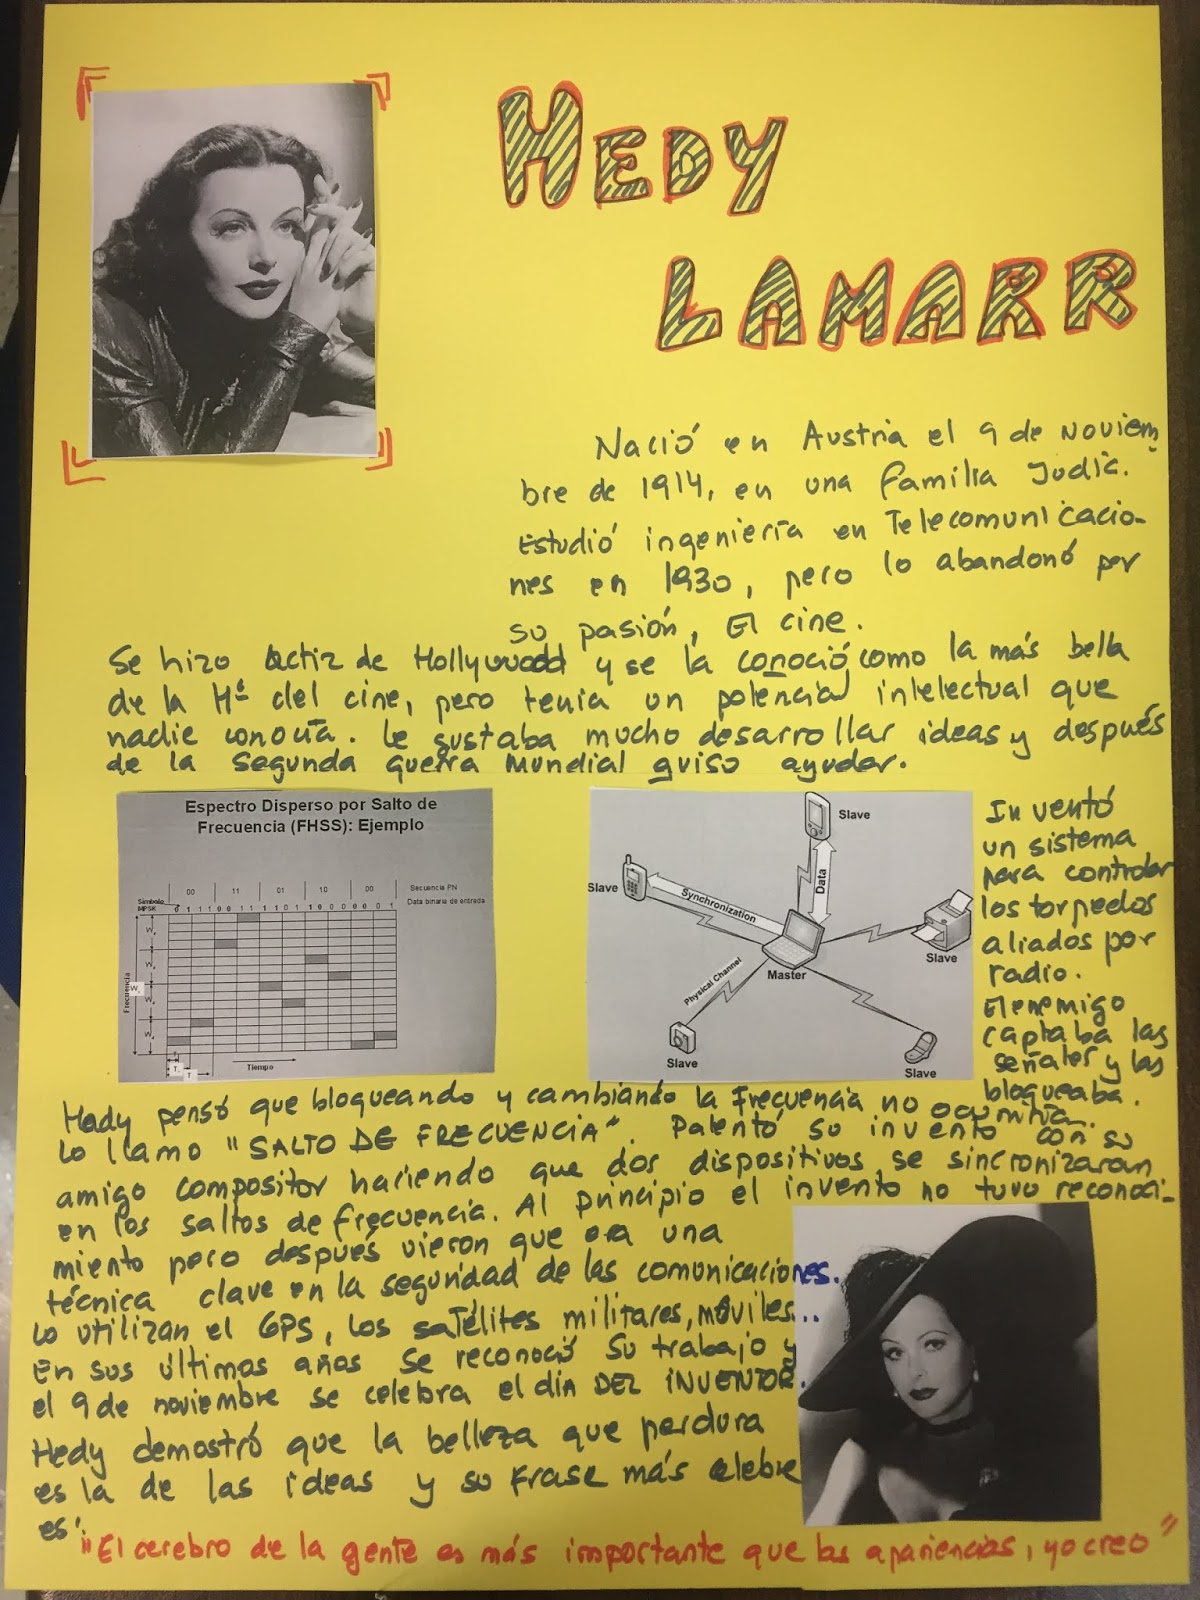 HEDY
LAMARR
Nació en Austria el 9 de noviem
bre de 1914, en una familia Judía.
Estudió ingeniería en Telecomunicacio-
nes en 1930, pero lo abandonó por
su pasión, El cine.
Se hizo actriz de Hollywood y se la conoció como la más bella
de la Hª del cine, pero tenía un potencial intelectual que
nadie conocía. Le gustaba mucho desarrollar ideas y después
de la Segunda guerra Mundial quiso ayudar.
Espectro Disperso por Salto de
Frecuencia (FHSS): Ejemplo
00 11 01 10 00 Secuencia PN
Símbolo
MPSK 0 1 1 1 1 0 1 1 0 1 1 0 0 0 0 0 0 0 0 1 Data binaria de entrada
Frecuencia
Tiempo
Slave
Slave
Synchronization
Data
Slave
Master
Physical Channel
Slave
Slave
Inventó
un sistema
para controlar
los torpedos
aliados por
radio.
El enemigo
captaba las
señales y las
bloqueaba.
Hedy pensó que bloqueando y cambiando la frecuencia no ocurriría.
Lo llamo "SALTO DE FRECUENCIA". Patentó su invento con su
amigo compositor haciendo que dos dispositivos se sincronizaran
en los saltos de frecuencia. Al principio el invento no tuvo reconoci-
miento pero después vieron que era una
técnica clave en la seguridad de las comunicaciones.
Lo utilizan el GPS, los satélites militares, móviles...
En sus últimos años se reconoció su trabajo y
el 9 de noviembre se celebra el día DEL INVENTOR.
Hedy demostró que la belleza que perdura
es la de las ideas y su frase más celebre
es:
"El cerebro de la gente es más importante que las apariencias, yo creo"